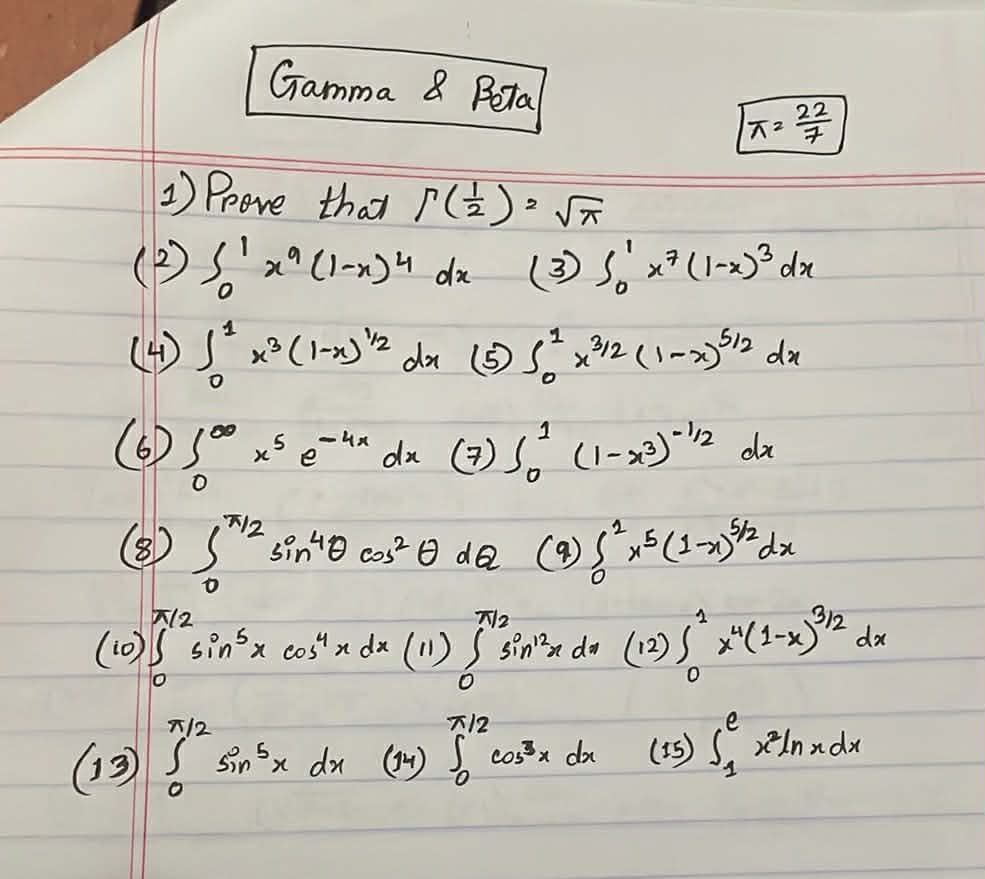 Gamma & Beta
π = 22/7
1) Prove that Γ(1/2) = √π
(2) ∫₀¹ x⁹ (1-x)⁴ dx (3) ∫₀¹ x⁷ (1-x)³ dx
(4) ∫₀¹ x³ (1-x)^1/2 dx (5) ∫₀¹ x^3/2 (1-x)^5/2 dx
(6) ∫₀^∞ x⁵ e^-4x dx (7) ∫₀¹ (1-x³)^-1/2 dx
(8) ∫₀^π/2 sin⁴θ cos²θ dθ (9) ∫₀¹ x⁵ (1-x)^5/2 dx
(10) ∫₀^π/2 sin⁵x cos⁴x dx (11) ∫₀^π/2 sin¹²x dx (12) ∫₀¹ x⁴(1-x)^3/2 dx
(13) ∫₀^π/2 sin⁵x dx (14) ∫₀^π/2 cos³x dx (15) ∫₁^e x² ln x dx